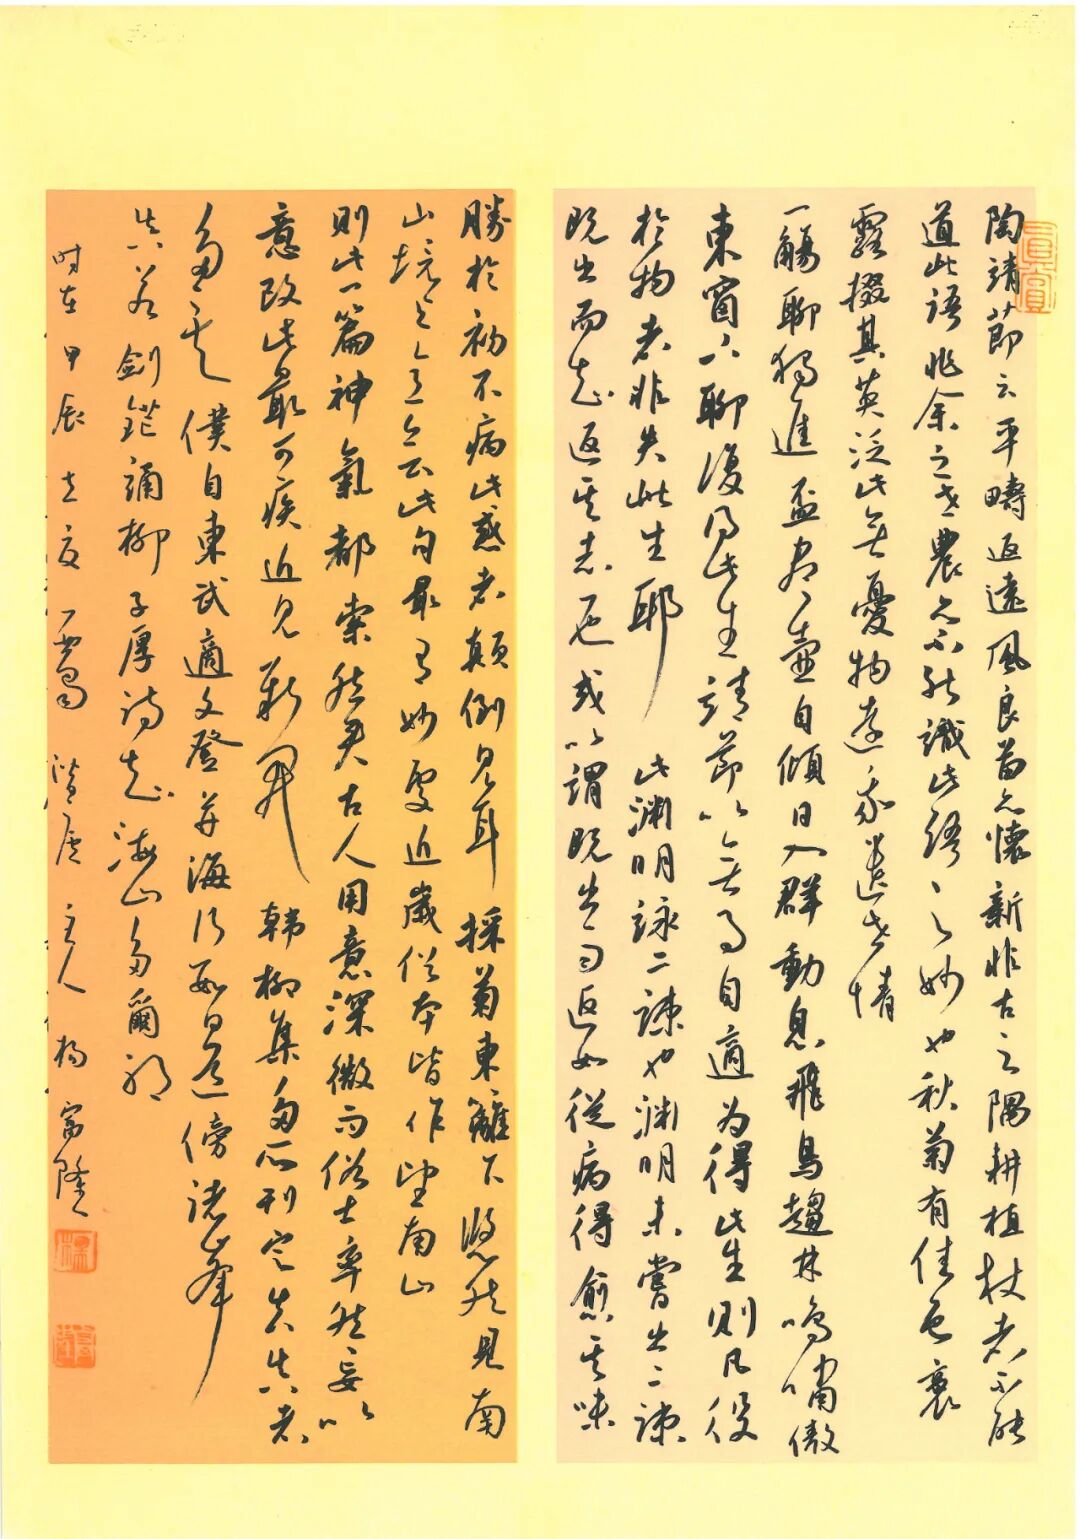 陶靖節云平疇返遠風良苗亦懷新非古之隅耕植杖者不能
道此語非余之世農亦不能識此語之妙也秋菊有佳色裛
露掇其英泛此無憂物遠我遺世情
一觴聊獨進盃盡壺自傾日入群動息飛鳥趨林鳴嘯傲
東窗下聊復得此生靖節以無事自適為得此生則凡役
於物者非失此生耶　此淵明詠二疎也淵明未嘗出二疎
既出而知返其志一也或以謂既出而返如從病得愈其味
勝於初不病此惑者顛倒見耳採菊東籬下悠然見南
山境與意合此句最有妙處近歲俗本皆作望南山
則此一篇神氣都索然矣古人用意深微而俗士率然妄以
意改此最可疾近見新開韓柳集多所刊定失真者
多矣僕自東武適文登並海行數日道傍諸峯
真若劍鋩誦柳子厚詩知海山多爾耶
時在甲辰立夏　主人楊富隆
真賞